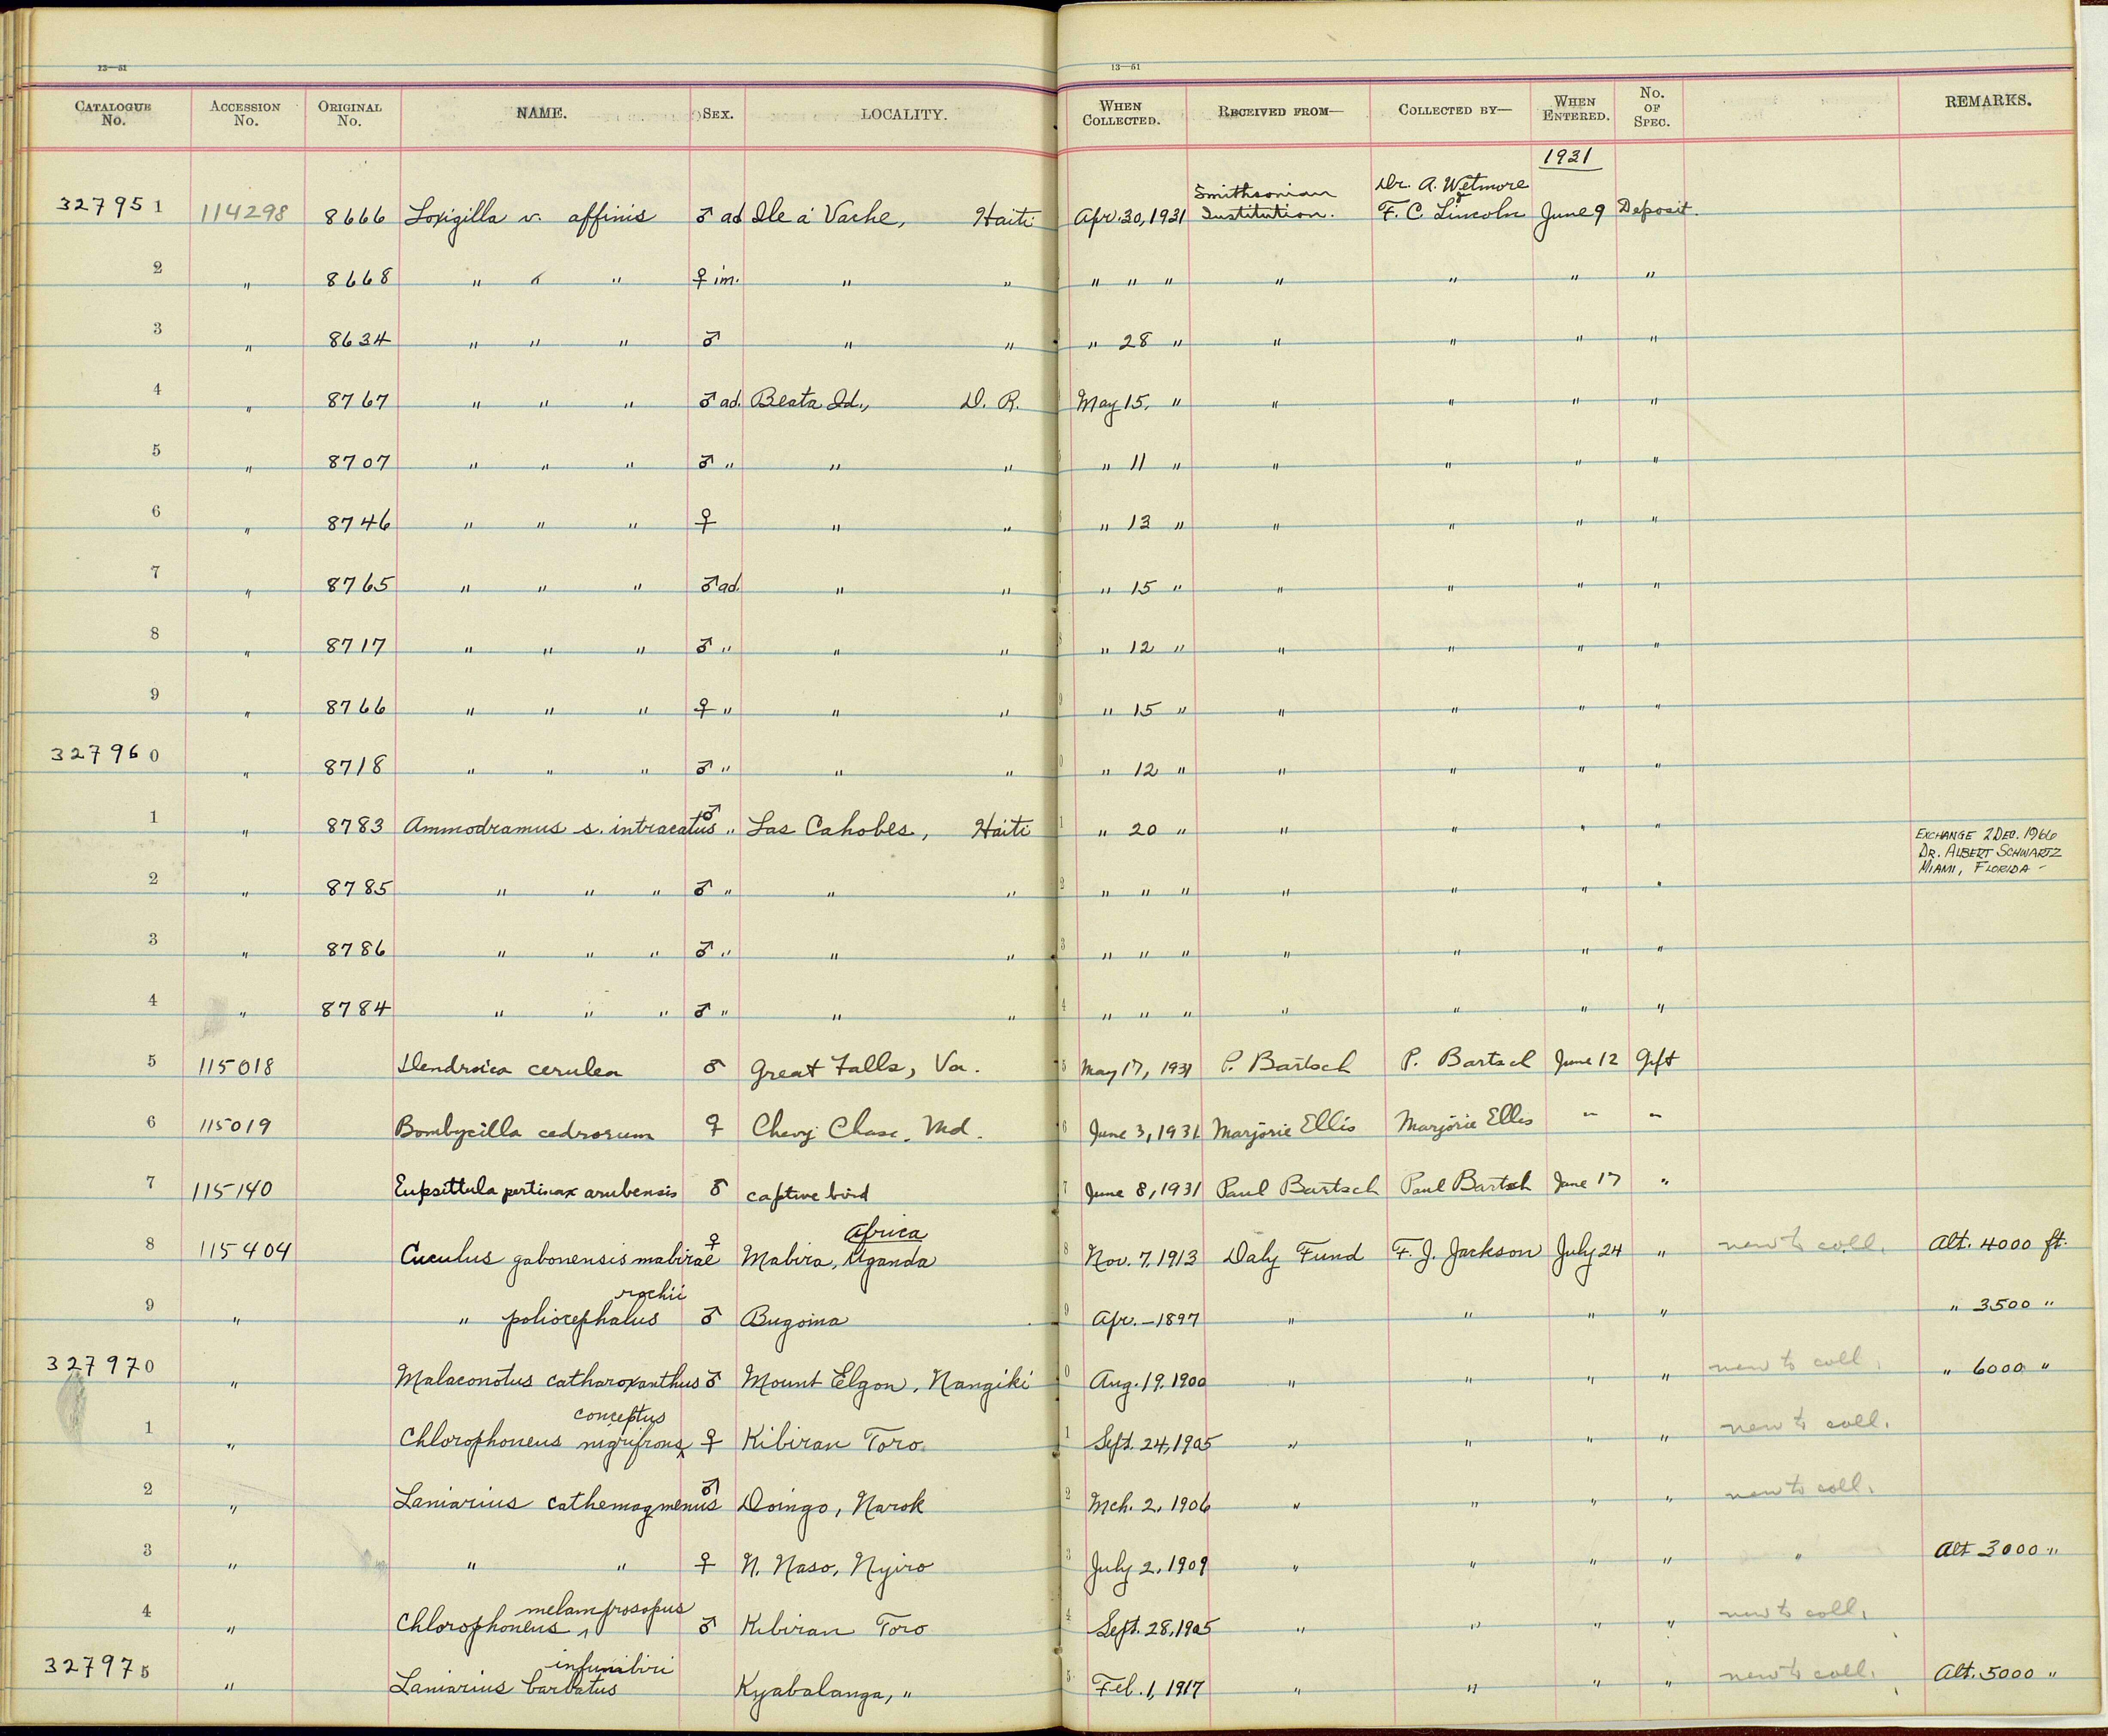 13—51 13—51
CATALOGUE No. ACCESSION No. ORIGINAL No. NAME. SEX. LOCALITY. WHEN COLLECTED. RECEIVED FROM— COLLECTED BY— WHEN ENTERED. No. OF SPEC. REMARKS.
1931
327951 114298 8666 Loxigilla v. affinis ♂ ad Ile á Vache, Haiti Apr. 30, 1931 Smithsonian Institution. Dr. A. Wetmore & F. C. Lincoln June 9 Deposit.
2 " 8668 " " " ♀ im. " " " " " " " " "
3 " 8634 " " " ♂ " " " 28 " " " " "
4 " 8767 " " " ♂ ad. Beata Id., D. R. May 15, " " " " "
5 " 8707 " " " ♂ " " " " 11 " " " " "
6 " 8746 " " " ♀ " " " 13 " " " " "
7 " 8765 " " " ♂ ad. " " " 15 " " " " "
8 " 8717 " " " ♂ " " " " 12 " " " " "
9 " 8766 " " " ♀ " " " " 15 " " " " "
327960 " 8718 " " " ♂ " " " " 12 " " " " "
1 " 8783 Ammodramus s. intracatus ♂ " Las Cahobes, Haiti 1 " 20 " " " " "
2 " 8785 " " " ♂ " " " 2 " " " " " " " EXCHANGE 2 DEC. 1966
DR. ALBERT SCHWARTZ
MIAMI, FLORIDA -
3 " 8786 " " " ♂ " " " 3 " " " " " " "
4 " 8784 " " " ♂ " " " 4 " " " " " " "
5 115018 Dendroica cerulea ♂ Great Falls, Va. 5 May 17, 1931 P. Bartsch P. Bartsch June 12 Gift
6 115019 Bombycilla cedrorum ♀ Chevy Chase, Md. 6 June 3, 1931 Marjorie Ellis Marjorie Ellis " "
7 115140 Eupsittula pertinax arubensis ♂ captive bird 7 June 8, 1931 Paul Bartsch Paul Bartsch June 17 "
8 115404 Cuculus gabonensis mabirae ♀ Mabira, Uganda Africa 8 Nov. 7, 1913 Daly Fund F. J. Jackson July 24 " new to coll. Alt. 4000 ft.
rochii
9 " " poliocephalus ♂ Bugoma 9 Apr. — 1897 " " " " " 3500 "
327970 " Malaconotus catharoxanthus ♂ Mount Elgon, Nangiki 0 Aug. 19, 1900 " " " " new to coll. " 6000 "
conceptus
1 " Chlorophoneus nigrifrons ♀ Kibiran Toro. 1 Sept. 24, 1905 " " " " new to coll.
2 " Laniarius cathemagmenus ♂ Doingo, Narok 2 Mch. 2, 1906 " " " " new to coll.
3 " " " ♀ N. Naso, Nyiro 3 July 2, 1909 " " " " " Alt 3000 "
melamprosopus
4 " Chlorophoneus ^ ♂ Kibiran Toro 4 Sept. 28, 1905 " " " " new to coll.
327975 " Laniarius barbatus Kyabalanga, " 5 Feb. 1, 1917 " " " " new to coll. Alt. 5000 "